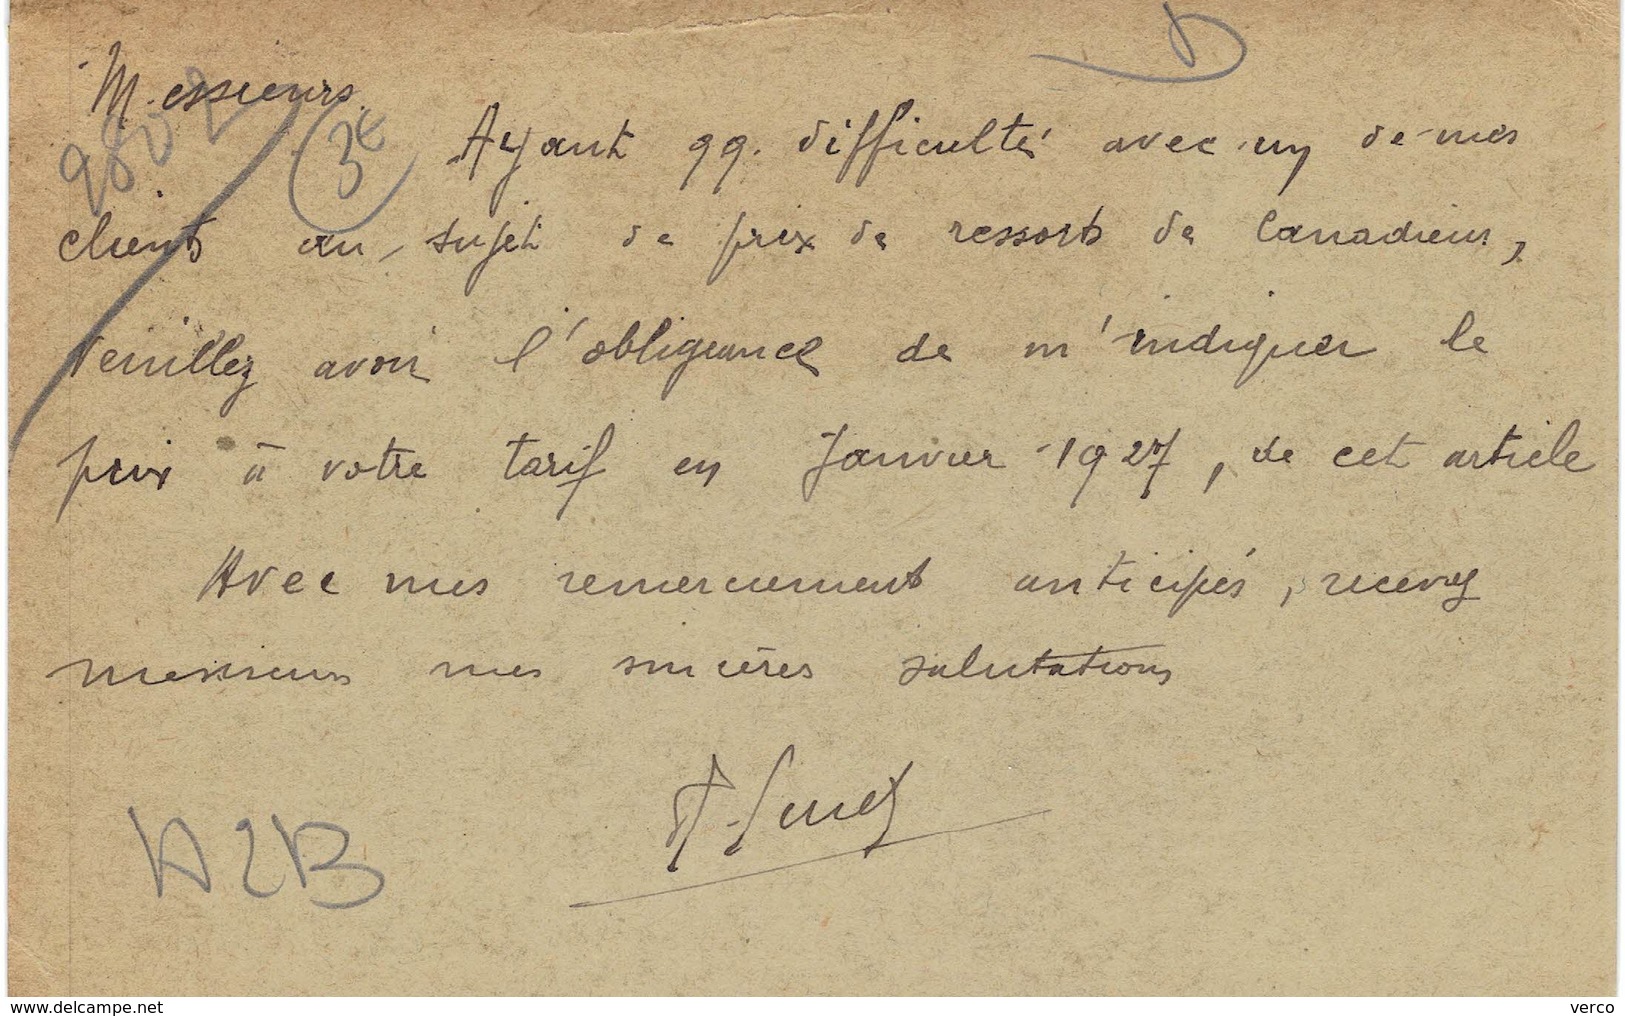 Messieurs.
9802
3e
Ayant qq. difficulté avec un de mes
clients au sujet de prix de ressorts de Canadiens,
Veuillez avoir l'obligeance de m'indiquer le
prix à votre tarif en Janvier 1927, de cet article
Avec mes remerciements anticipés, recevez
messieurs mes sincères salutations
A2B
www.delcampe.net
verco